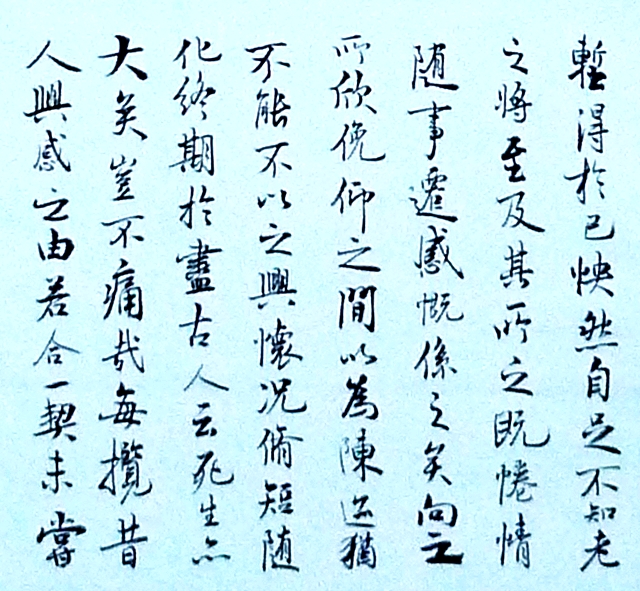 暫得於己怏然自足不知老
之將至及其所之既惓情
随事遷感慨係之矣向之
所欣俛仰之間以為陳迹猶
不能不以之興懷況脩短随
化終期於盡古人云死生亦
大矣豈不痛哉每攬昔
人興感之由若合一契未嘗